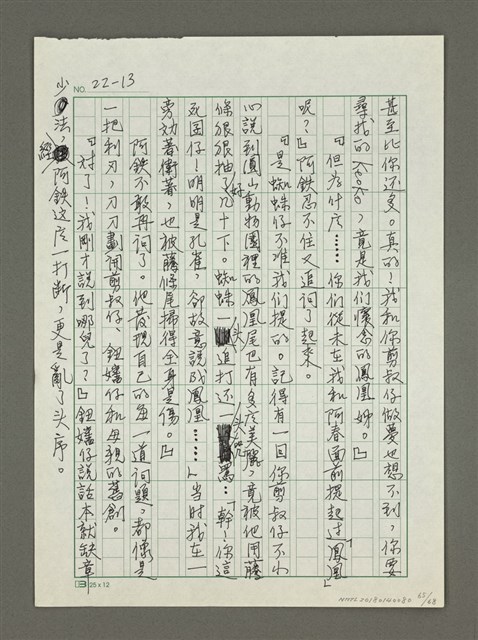 NO. 22-13
甚至比你还多。真的！我和你剪叔仔做夢也想不到，你要
尋找的KoKo，竟是我们懷念的鳳凰姊。』
『但为什広……你们從未在我和阿春面前提起过「鳳凰」
呢？』阿鉄忍不住又追问了起來。
『是蜘蛛仔不准我们提的。記得有一回你剪叔仔不小
心說到鳳山動物園裡的鳳凰尾巴有多広美麗，竟被他用藤
條狠狠抽了好几十下。蜘蛛一头追打还一头咒罵…「幹！你這
死囝仔！明明是孔雀，卻故意說成鳳凰……」当时我在一
旁効著衛著，也被藤條尾掃得全身是傷。』
阿鉄不敢再问了。他發現自己的每一道问題，都像是
一把利刃，刀刀劃开剪叔仔、鈕嬸仔和母親的舊創。
『对了！我剛才說到哪兒了？』鈕嬸仔說話本就缺章
少法，經阿鉄这広一打断，更是亂了头序。
25x12
NMTL20180140080
65/68